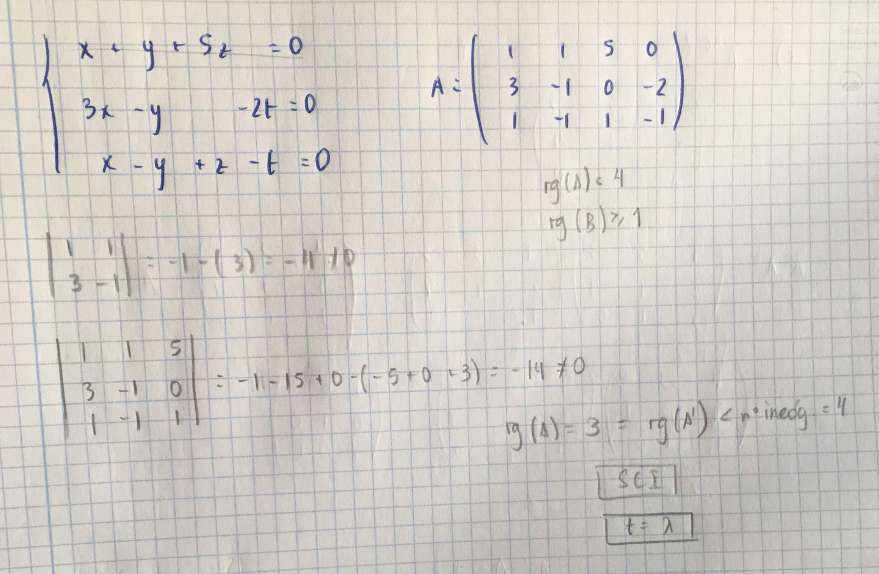 x + y + 5z = 0
3x - y - 2t = 0
x - y + z - t = 0
A = ( 1 1 5 0
3 -1 0 -2
1 -1 1 -1 )
rg(A) < 4
rg(B) ≥ 1
| 1 1
3 -1 | = -1 - (3) = -4 ≠ 0
| 1 1 5
3 -1 0
1 -1 1 | = -1 - 15 + 0 - (-5 + 0 + 3) = -14 ≠ 0
rg(A) = 3 = rg(A') < nº incóg. = 4
SCI
t = λ